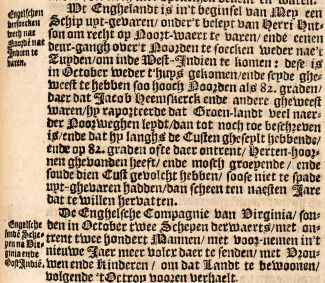 Engelschen besoecken wech nae Noorde nae Indien te varen.
Wt Enghelandt is in't beginsel van Mey een
Schip uyt-gevaren/ onder't beleyt van Herri Hut-
son om recht op Noort-waert te varen/ ende eenen
deur-gangh over't Noorden te soecken weder nae't
Zuyden/om inde West-Indien te komen: dese is
in October weder t'huys gekomen/ende seyde ghe-
weest te hebben soo hooch Noorden als 82. graden/
daer dat Jacob Heemskerck ende andere gheweest
waren/ hy rapporteerde dat Groen-landt veel naer-
der Noorweghen leydt/dan tot noch toe beschreven
is/ende dat hy langhs de Custen gheseylt hebbende/
ende op 82. graden ofte daer ontrent/ Herten-hoor-
nen ghevonden heeft/ ende mosch groeyende/ ende
soude dien Cust gevolcht hebben/ soose niet te spade
uyt-ghevaren hadden/dan scheen ten naesten Jare
dat te willen hervatten.
Engelsche sende Schepen na Virginia ende Oost-Indie.
De Enghelsche Compagnie van Virginia/ son-
den in October twee Schepen derwaerts/ met on-
trent twee hondert Mannen/ met voor-nemen in't
nieuwe Jaer meer volcx daer te senden/ met Vrou-
wen ende kinderen/ om dat Landt te bewoonen/
volgende 't Octroy voozen verhaelt.